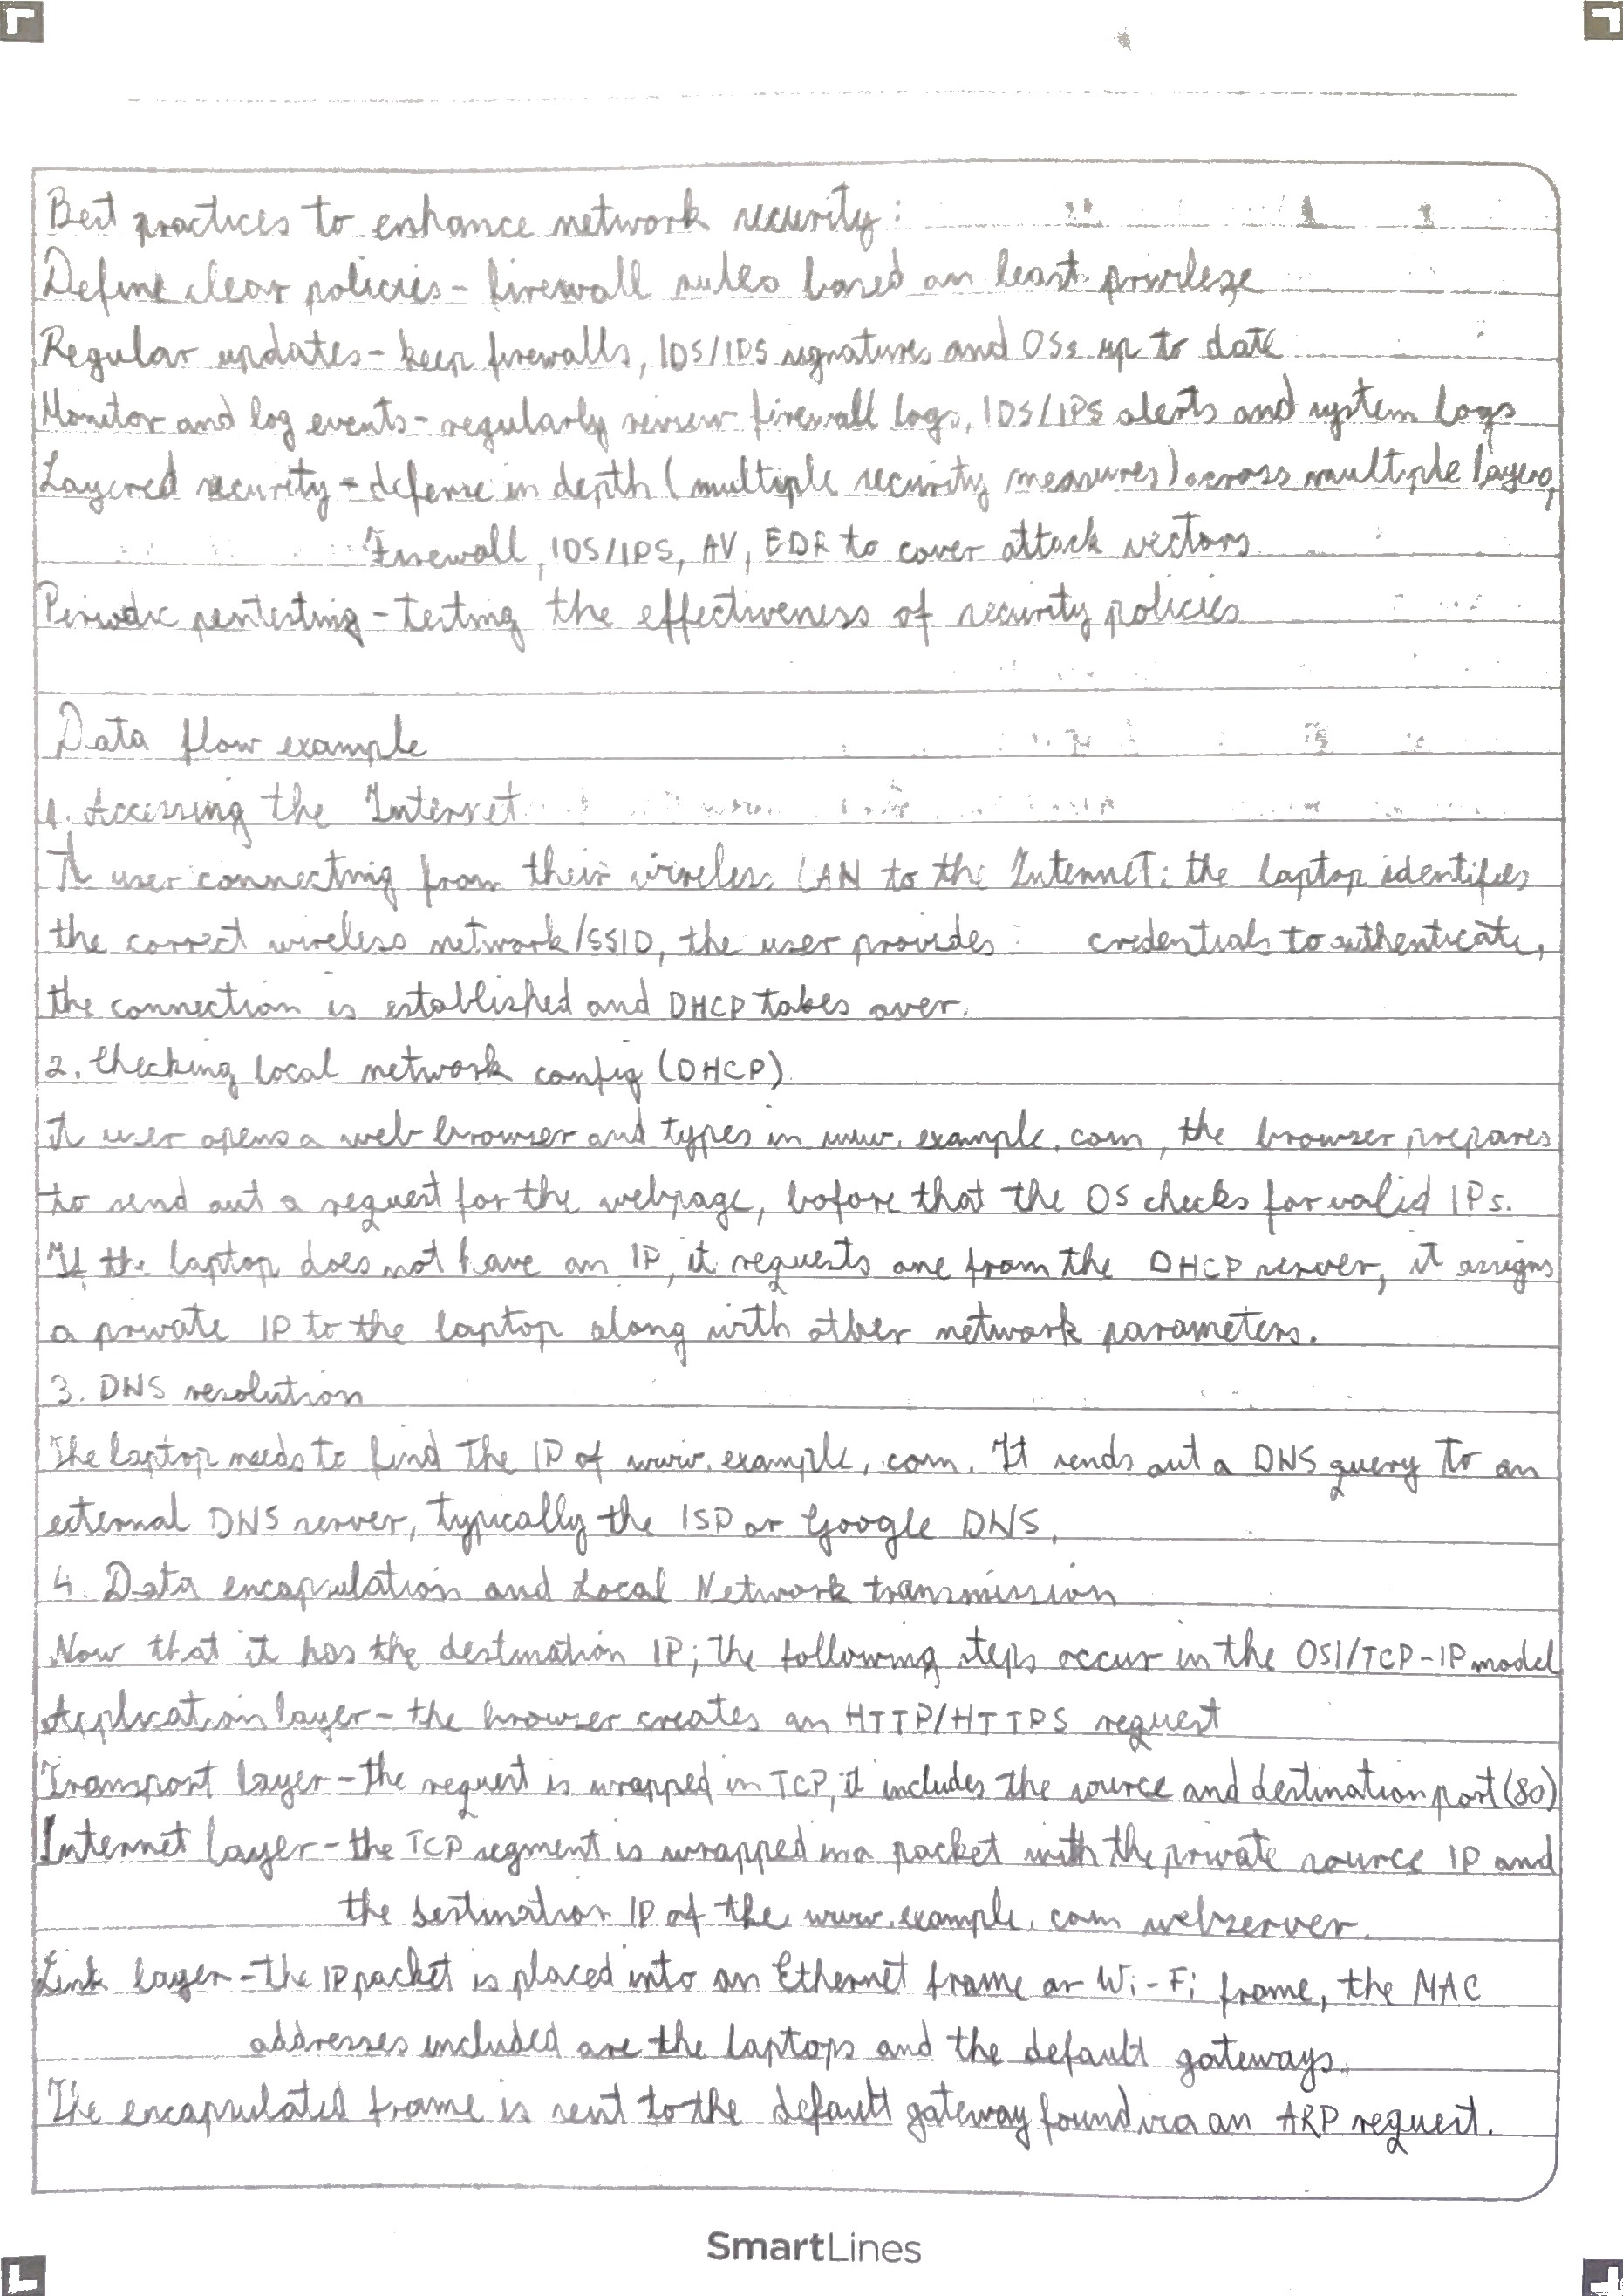 Best practices to enhance network security:
Define clear policies - firewall rules based on least privilege
Regular updates - keep firewalls, IDS/IPS signatures and OSs up to date
Monitor and log events - regularly review firewall logs, IDS/IPS alerts and system logs
Layered security - defense in depth (multiple security measures) across multiple layers,
Firewall, IDS/IPS, AV, EDR to cover attack vectors
Periodic pentesting - testing the effectiveness of security policies
Data flow example
1. Accessing the Internet
A user connecting from their wireless LAN to the Internet: the laptop identifies
the correct wireless network/SSID, the user provides credentials to authenticate,
the connection is established and DHCP takes over.
2. Checking local network config (DHCP)
A user opens a web browser and types in www.example.com, the browser prepares
to send out a request for the webpage, before that the OS checks for valid IPs.
If the laptop does not have an IP, it requests one from the DHCP server, it assigns
a private IP to the laptop along with other network parameters.
3. DNS resolution
The laptop needs to find the IP of www.example.com. It sends out a DNS query to an
external DNS server, typically the ISP or Google DNS.
4. Data encapsulation and Local Network transmission
Now that it has the destination IP; the following steps occur in the OSI/TCP-IP model
Application layer - the browser creates an HTTP/HTTPS request
Transport layer - the request is wrapped in TCP, it includes the source and destination port (80)
Internet layer - the TCP segment is wrapped in a packet with the private source IP and
the destination IP of the www.example.com webserver.
Link layer - the IP packet is placed into an Ethernet frame or Wi-Fi frame, the MAC
addresses included are the laptops and the default gateways.
The encapsulated frame is sent to the default gateway found via an ARP request.
SmartLines